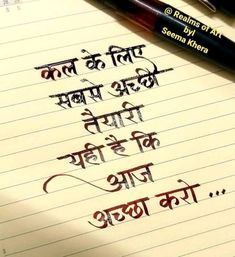 @ Realms of Art
byl
Seema Khera
कल के लिए
सबसे अच्छी
तैयारी
यही है कि
आज
अच्छा करो ...